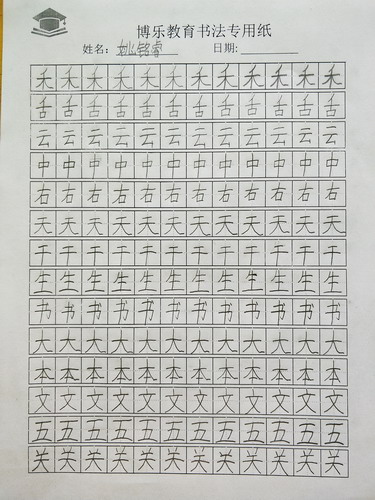 博乐教育书法专用纸
姓名: 姚铭睿 日期:
禾禾禾禾禾禾禾禾禾禾禾禾
舌舌舌舌舌舌舌舌舌舌舌舌
云云云云云云云云云云云云
中中中中中中中中中中中中
右右右右右右右右右右右右
天天天天天天天天天天天天
干干干干干干干干干干干干
生生生生生生生生生生生生
书书书书书书书书书书书书
大大大大大大大大大大大大
本本本本本本本本本本本本
文文文文文文文文文文文文
五五五五五五五五五五五五
关关关关关关关关关关关关